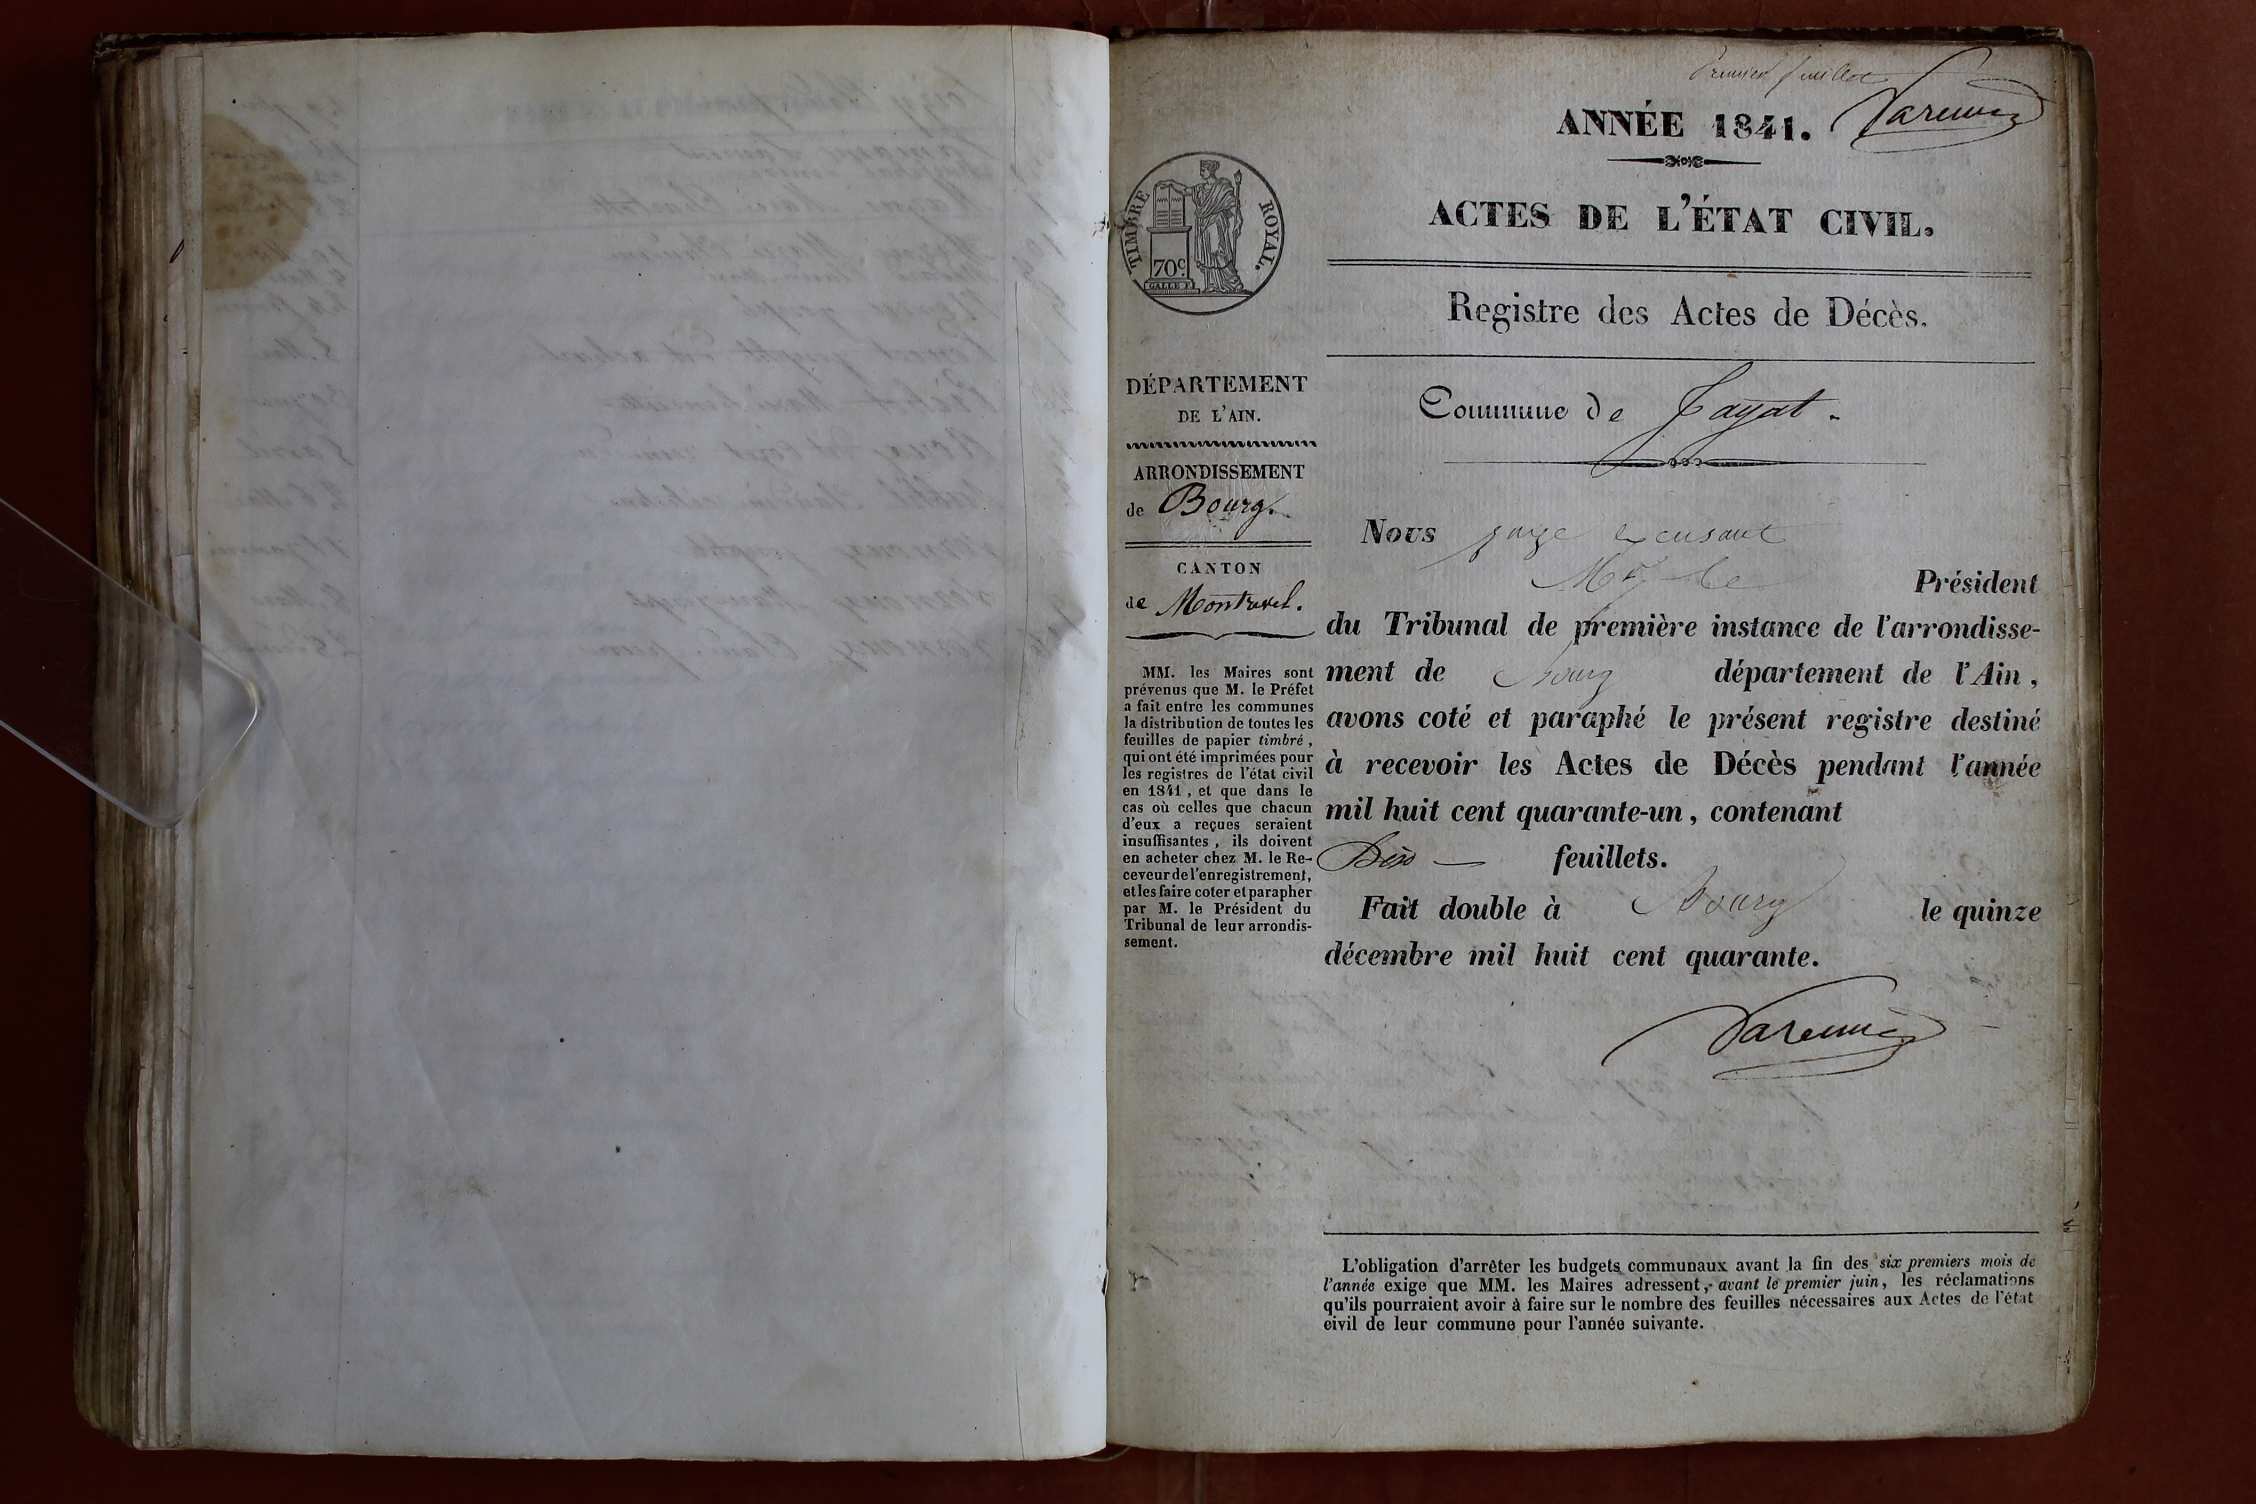 Premier feuillet
ANNÉE 1841.
ACTES DE L'ÉTAT CIVIL.
TIMBRE ROYAL.
70c
Registre des Actes de Décès.
DÉPARTEMENT
DE L'AIN.
ARRONDISSEMENT
de Bourg.
CANTON
de Montrevel.
MM. les Maires sont
prévenus que M. le Préfet
a fait entre les communes
la distribution de toutes les
feuilles de papier timbré,
qui ont été imprimées pour
les registres de l'état civil
en 1841, et que dans le
cas où celles que chacun
d'eux a reçues seraient
insuffisantes, ils doivent
en acheter chez M. le Re-
ceveur de l'enregistrement,
et les faire coter et parapher
par M. le Président du
Tribunal de leur arrondis-
sement.
Commune de Jayat.
Nous juge
Mr le Président
du Tribunal de première instance de l'arrondisse-
ment de Bourg département de l'Ain,
avons coté et paraphé le présent registre destiné
à recevoir les Actes de Décès pendant l'année
mil huit cent quarante-un, contenant
Dix feuillets.
Fait double à Bourg le quinze
décembre mil huit cent quarante.
L'obligation d'arrêter les budgets communaux avant la fin des six premiers mois de
l'année exige que MM. les Maires adressent, avant le premier juin, les réclamations
qu'ils pourraient avoir à faire sur le nombre des feuilles nécessaires aux Actes de l'état
civil de leur commune pour l'année suivante.